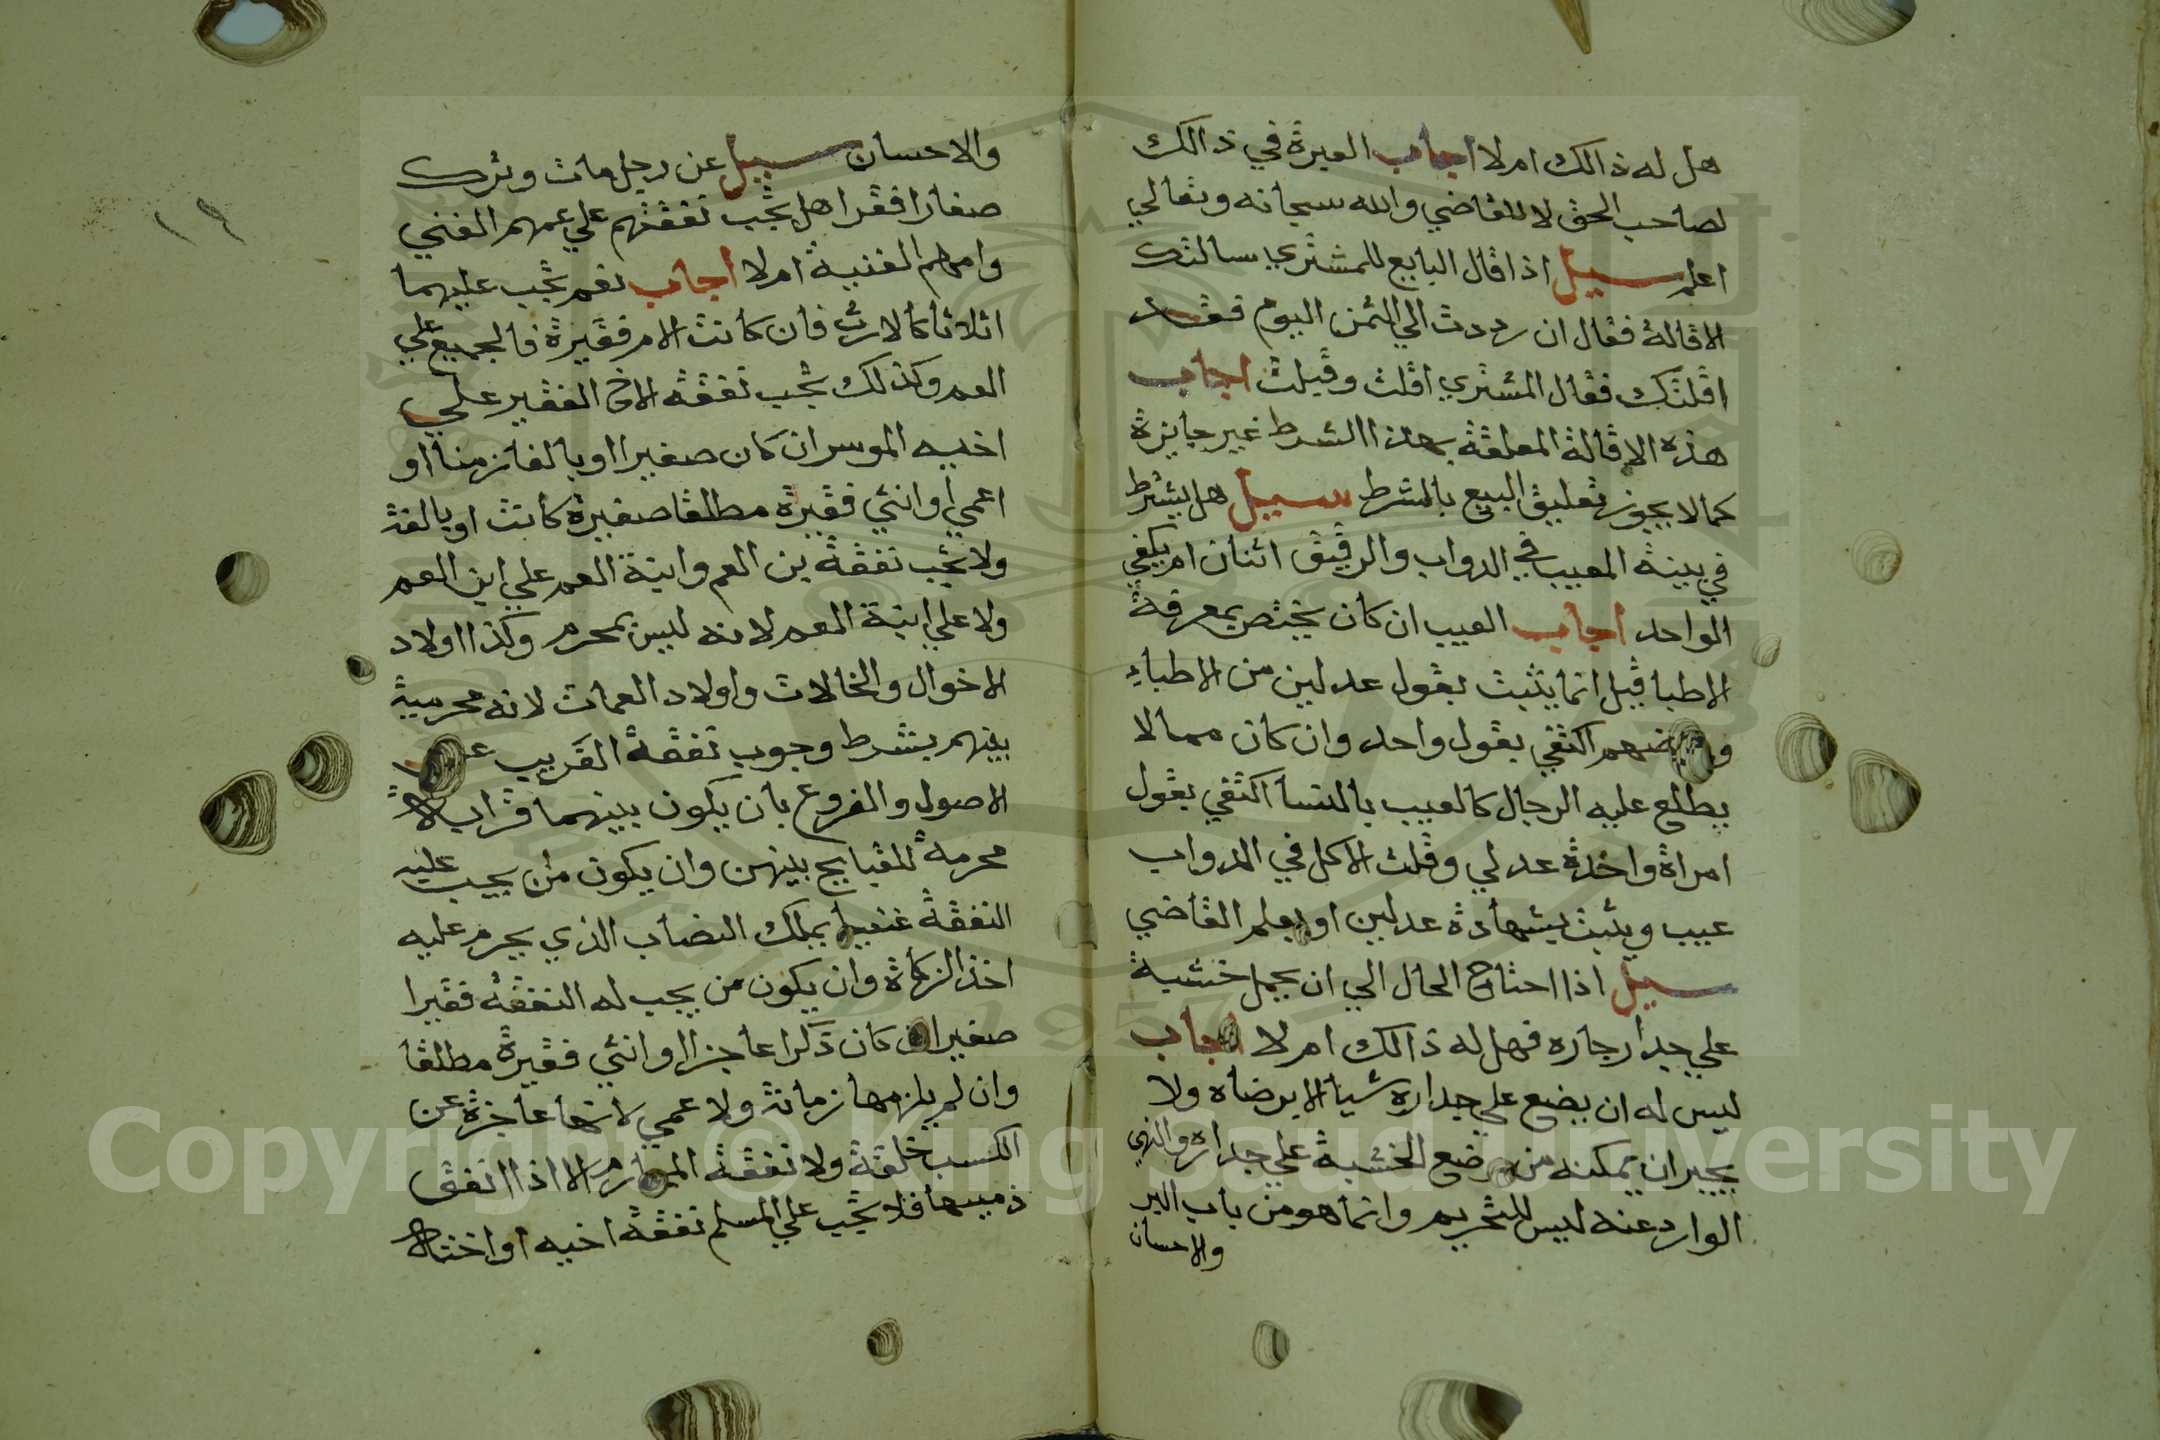 هل له ذالك ام لا اجاب العبرة في ذالك
لصاحب الحق لا للقاضي والله سبحانه وتعالي
اعلم سيل اذا قال البايع للمشتري سالتك
الاقالة فقال ان رددت الي الثمن اليوم فقد
اقلتك فقال المشتري اقلت وقبلت اجاب
هذه الاقالة المعلقة بهذا الشرط غير جايزة
كما لا يجوز تعليق البيع بالشرط سيل هل يشترط
في بينة المعيب في الدواب والرقيق اثنان ام يكفي
الواحد اجاب العيب ان كان يختص بمعرفة
الاطبا قبل انما يثبت بقول عدلين من الاطباء
اكتفي بقول واحد وان كان مما لا
يطلع عليه الرجال كالعيب بالنسا اكتفي بقول
امراة واحدة عدلي وقلت الاكل في الدواب
عيب ويثبت بشهادة عدلين او بعلم القاضي
سيل اذا احتاج الحال الي ان يحمل خشبة
علي جدار جاره فهل له ذالك ام لا اجاب
ليس له ان يضع علي جداره شيا الا برضاه ولا
يجبر ان يمكنه من وضع الخشبة علي جداره والنهي
الوارد عنه ليس للتحريم وانما هو من باب البر
والاحسان
١٩
والاحسان سيل عن رجل مات وترك
صغارا فقرا هل يجب نفقتهم علي عمهم الغني
وامهم الغنية ام لا اجاب نعم تجب عليهما
اثلاثا كالارث فان كانت الام فقيرة فالجميع علي
العم وكذلك تجب نفقة الاخ الفقير علي
اخيه الموسر ان كان صغيرا او بالغا زمنا او
اعمي او انثي فقيرة مطلقا صغيرة كانت او بالغة
ولا تجب نفقة بن العم وابنة العم علي ابن العم
ولا علي ابنة العم لانه ليس بمحرم وكذا اولاد
الاخوال والخالات واولاد العمات لانه محرمية
بينهم يشترط وجوب نفقة القريب
الاصول والفروع بان يكون بينهما قرابه
محرمة للقبايح بينهن وان يكون من يجب عليه
النفقة غنيا يملك النصاب الذي يحرم عليه
اخذ الزكاة وان يكون من يجب له النفقة فقيرا
صغير ان كان ذكرا عاجزا او انثي فقيرة مطلقا
وان لم يلزمها زمانة ولا عمي لانها عاجزة عن
الكسب خلقة ولا نفقة المحارم الا اذا اتفق
ذميسها فلا تجب علي المسلم نفقة اخيه او اخته
Copyright © King Saud University
1957